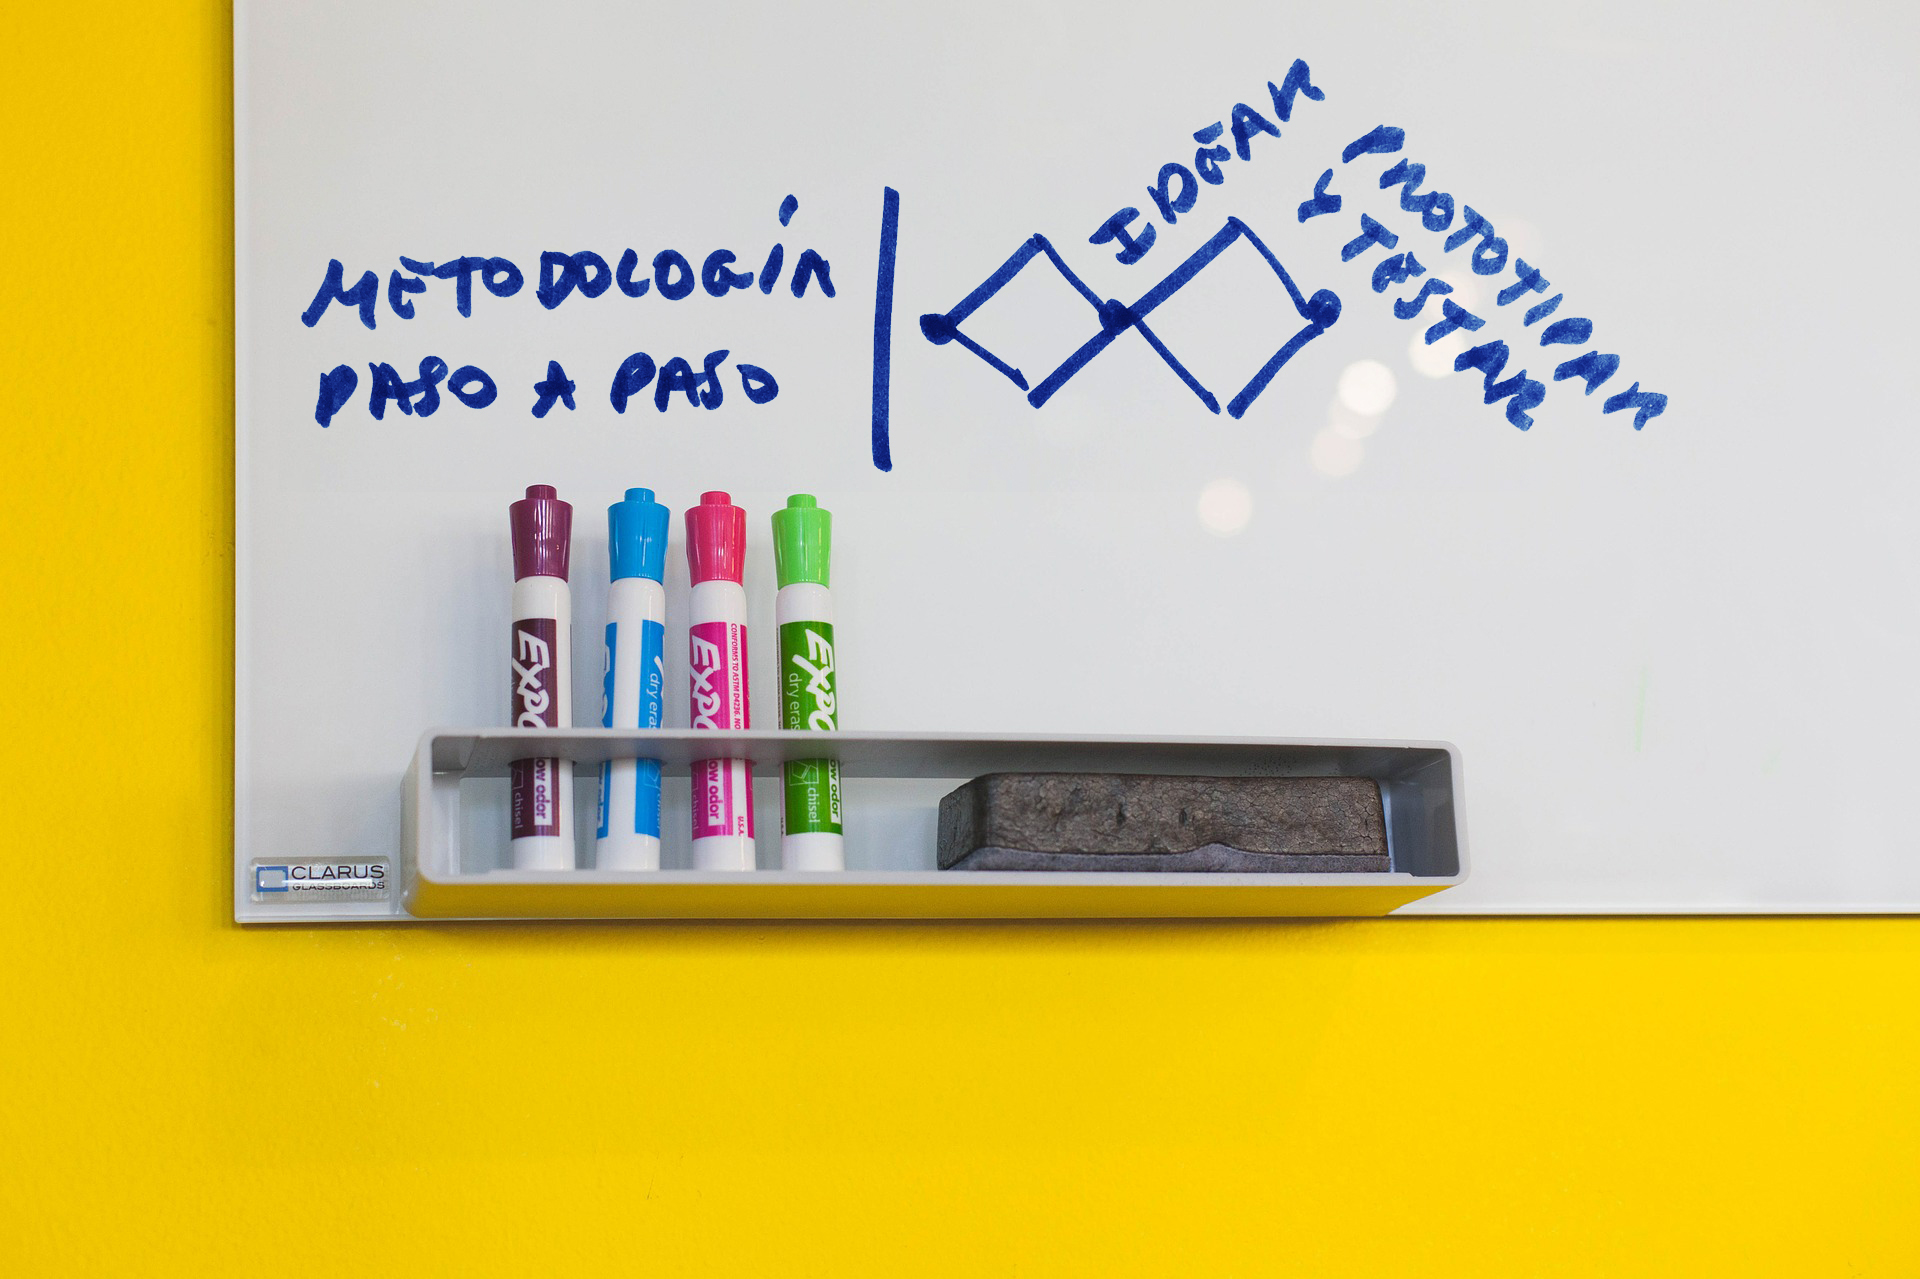 METODOLOGÍA
PASO A PASO
IDEAR
PROTOTIPAR
Y TESTAR
EXPO
low odor
chisel
dry eras
EXPO
CONFORMS TO ASTM D4236. NO
low odor
chisel
U.S.A.
EXPO
dry eras
low odor
chisel
CLARUS
GLASSBOARDS